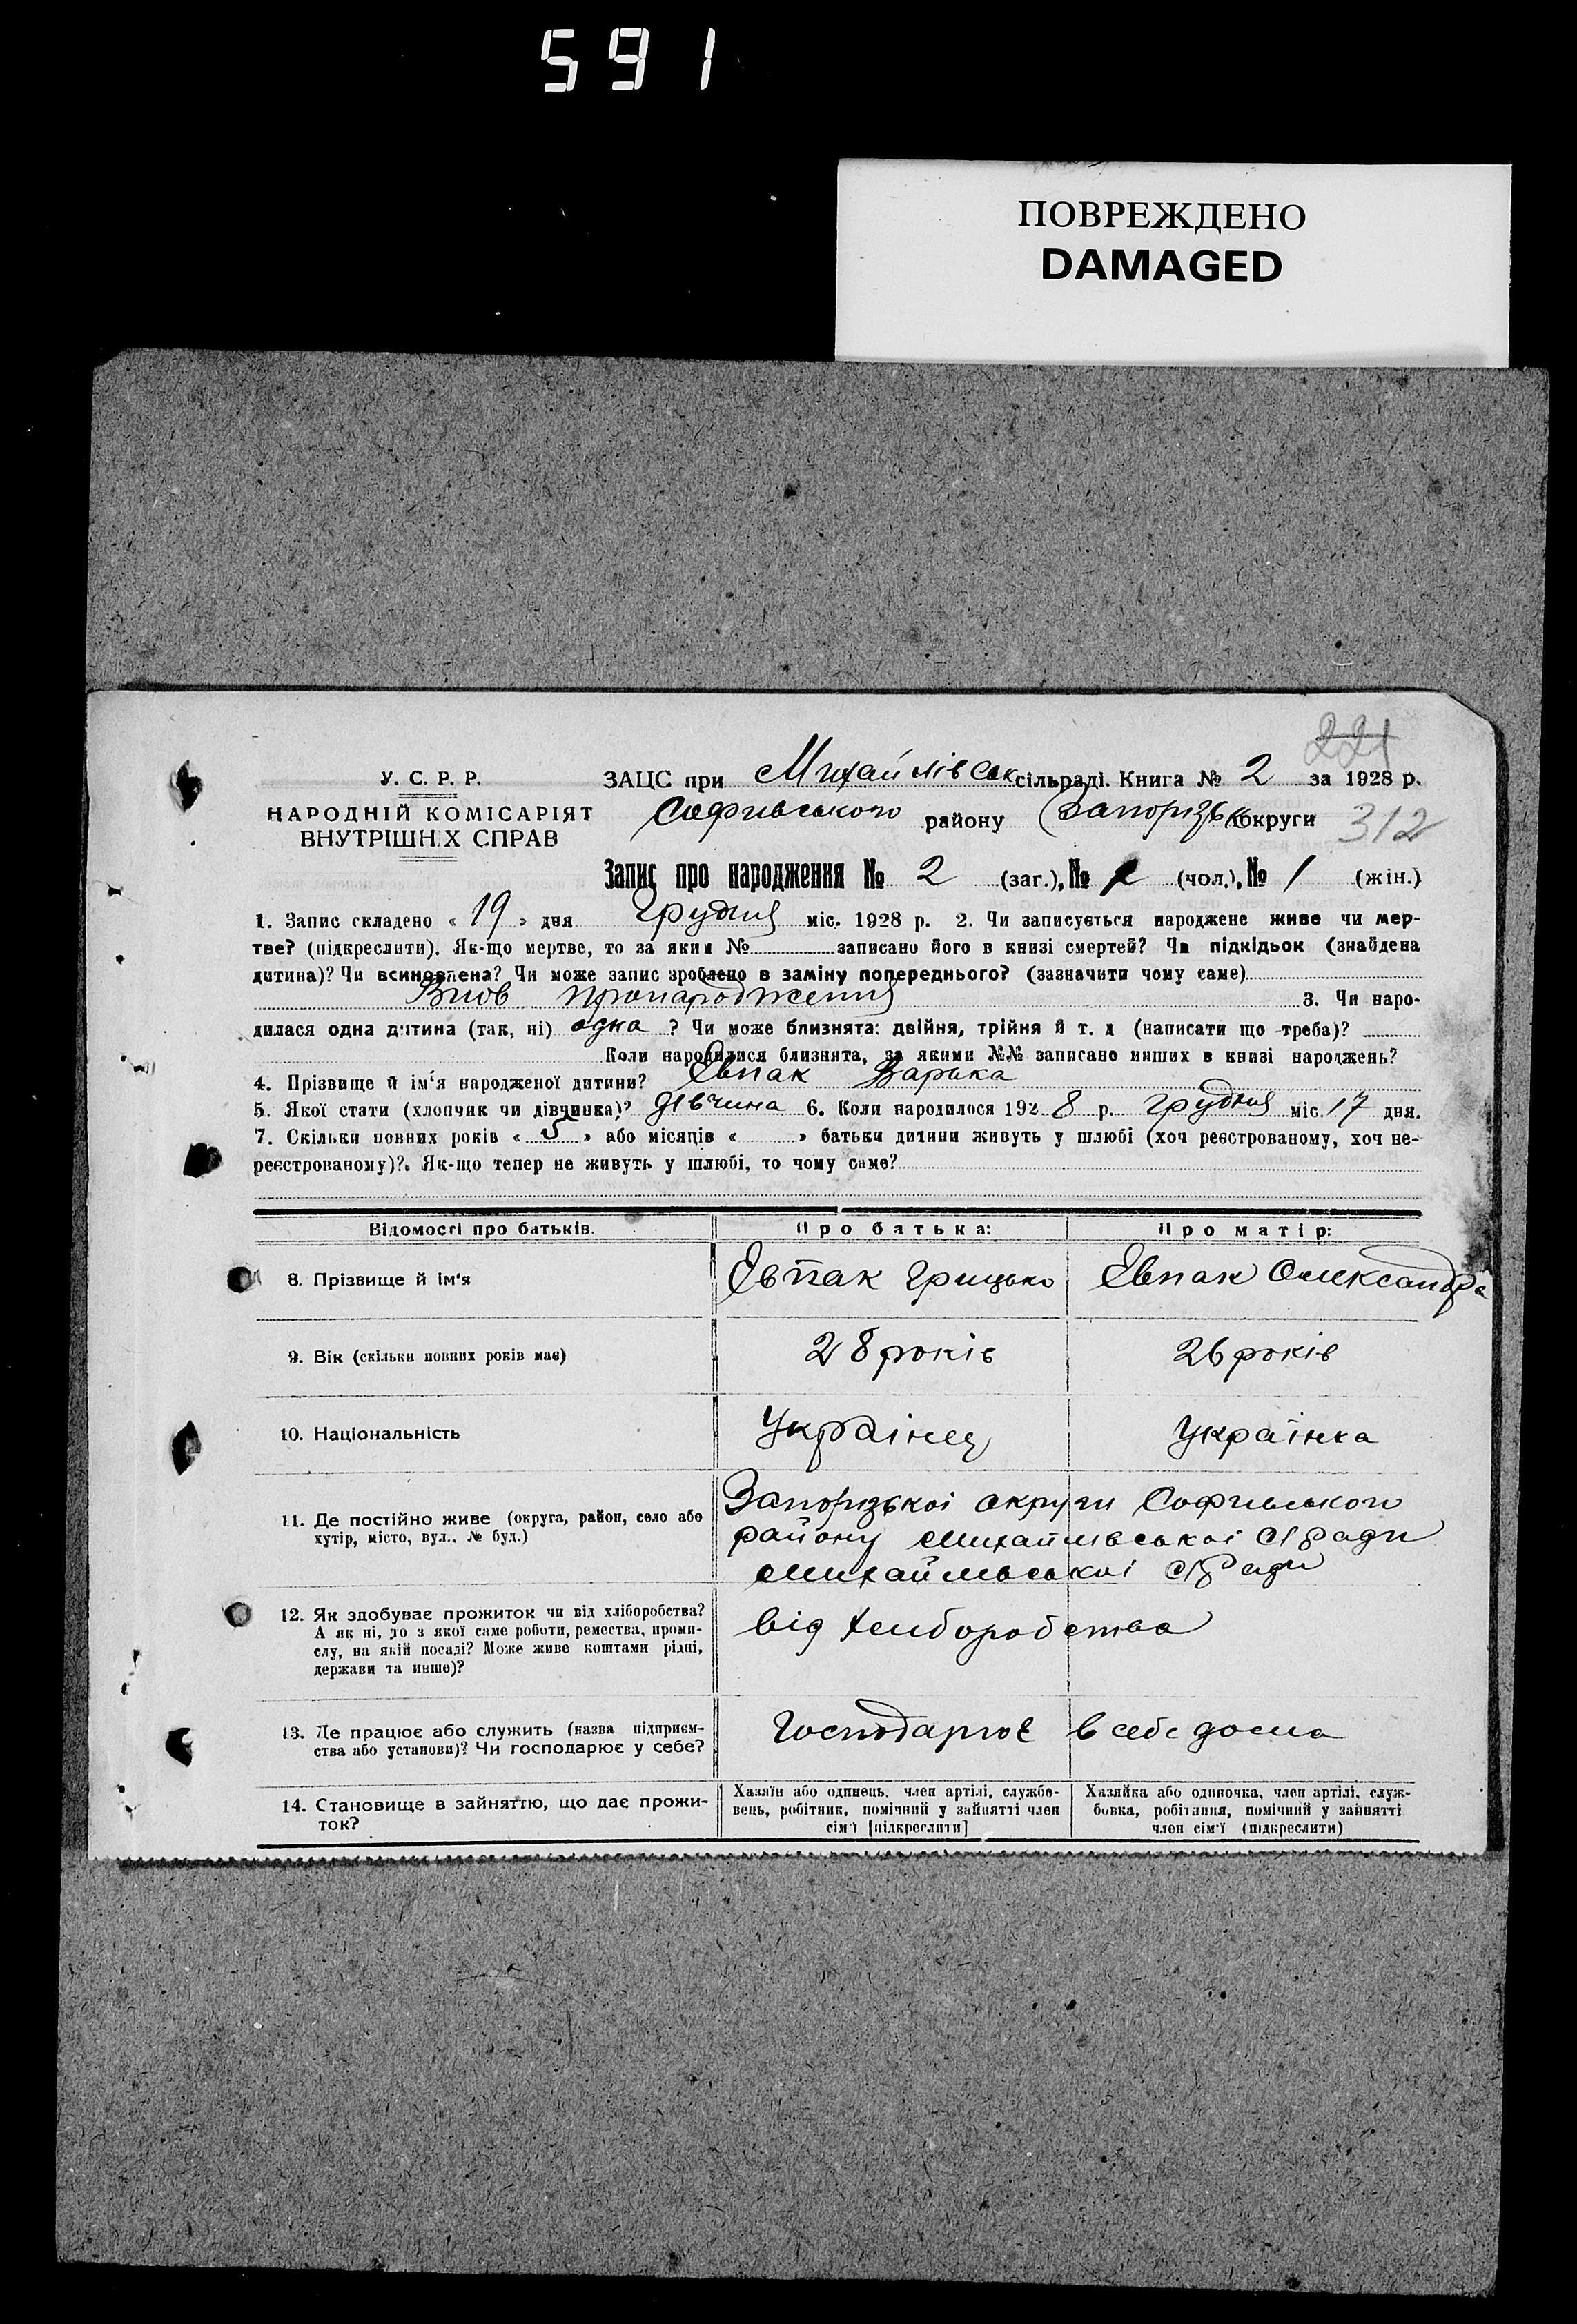 591
ПОВРЕЖДЕНО
DAMAGED
221
У. С. Р. Р.
НАРОДНІЙ КОМІСАРІЯТ
ВНУТРІШНІХ СПРАВ
ЗАЦС при Михайлівськ сільраді. Книга № 2 за 1928 р.
Софиівського району Запорізьк округи 312
Запис про народження № 2 (заг.), № (чол.), № 1 (жін.)
1. Запис складено « 19 » дня Грудня міс. 1928 р. 2. Чи записується народжене живе чи мер-
тве? (підкреслити). Як-що мертве, то за яким № записано його в книзі смертей? Чи підкідьок (знайдена
дитина)? Чи всиновлена? Чи може запис зроблено в заміну попереднього? (зазначити чому саме)
Внов пронародження 3. Чи наро-
дилася одна дитина (так, ні) одна ? Чи може близнята: двійня, трійня й т. д (написати що треба)?
Коли народилися близнята, за якими №№ записано инших в книзі народжень?
4. Прізвище й ім‘я народженої дитини? Євпак Варька
5. Якої стати (хлопчик чи дівчинка)? дівчина 6. Коли народилося 192 8 р. грудня міс. 17 дня.
7. Скільки повних років « 5 » або місяців « » батьки дитини живуть у шлюбі (хоч реєстрованому, хоч не-
реєстрованому)?. Як-що тепер не живуть у шлюбі, то чому саме?
Відомості про батьків. Про батька: Про матір:
8. Прізвище й ім‘я Євпак Грицько Євпак Олександра
9. Вік (скільки повних років має) 28 років 26 років
10. Національність Українец Українка
11. Де постійно живе (округа, район, село або
хутір, місто, вул., № буд.)
Запорізькоі округи Софиівського
району Михайлівськоі С/Ради
Михайлівськоі С/Ради
12. Як здобуває прожиток чи від хліборобства?
А як ні, то з якої саме роботи, ремества, проми-
слу, на якій посаді? Може живе коштами рідні,
держави та инше)?
від хлиборобства
13. Де працює або служить (назва підприєм-
ства або установи)? Чи господарює у себе?
Господарює в себе дома
14. Становище в зайняттю, що дає прожи-
ток?
Хазяїн або одинець, член артілі, службо-
вець, робітник, помічний у зайнятті член
сім‘ї [підкреслити]
Хазяйка або одиночка, член артілі, служ-
бовка, робітниця, помічний у зайнятті
член сім‘ї (підкреслити)